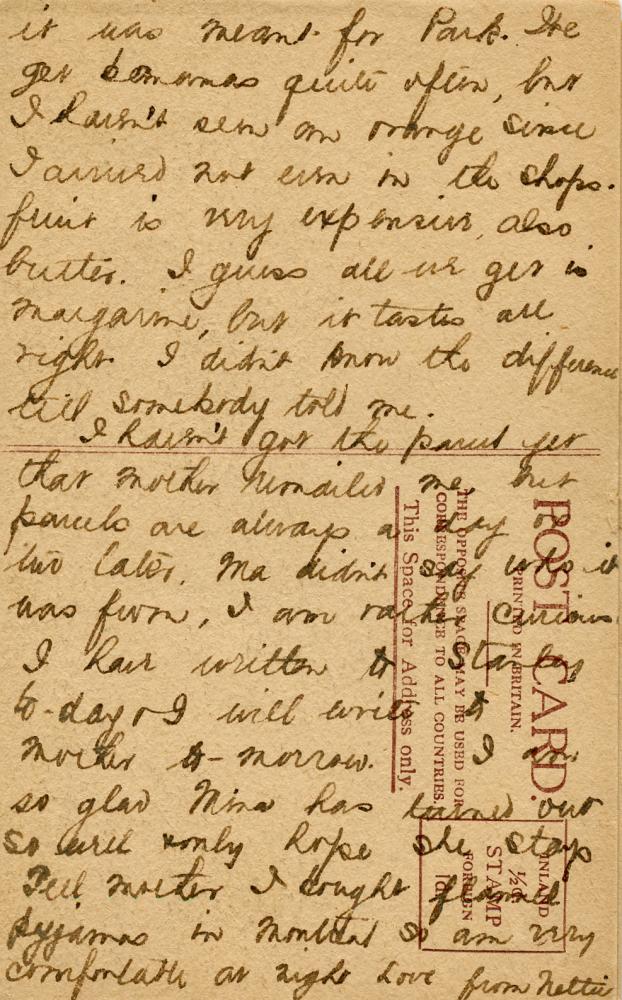 it was meant for Park. We
get bananas quite often, but
I haven't seen an orange since
I arrived not even in the shops.
fruit is very expensive, also
butter. I guess all we get is
margarine, but it tastes all
right. I didn't know the difference
till somebody told me.
I haven't got the parcel yet
that mother remailed me, but
parcels are always a day or
two later. Ma didn't say who it
was from, I am rather curious.
I have written to Stanley
to-day & I will write to
mother to-morrow. I am
so glad Mina has turned out
so well & only hope she stays
Tell mother I bought flannel
pyjamas in Montreal so am very
comfortable at night Love from Nettie
POST CARD.
PRINTED IN BRITAIN.
THE OPPOSITE SPACE MAY BE USED FOR
CORRESPONDENCE TO ALL COUNTRIES.
This Space for Address only.
INLAND
½d.
STAMP
FOREIGN
1d.